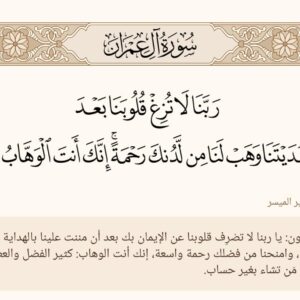 سُورَةُ آلِ عِمْرَان
رَبَّنَا لَا تُزِغْ قُلُوبَنَا بَعْدَ
هَدَيْتَنَا وَهَبْ لَنَا مِن لَّدُنكَ رَحْمَةً ۚ إِنَّكَ أَنتَ الْوَهَّابُ
الميسر
ون: يا ربنا لا تصرِف قلوبنا عن الإيمان بك بعد أن مننت علينا بالهداية
، وامنحنا من فضلك رحمة واسعة، إنك أنت الوهاب: كثير الفضل والعط
مَن تشاء بغير حساب.